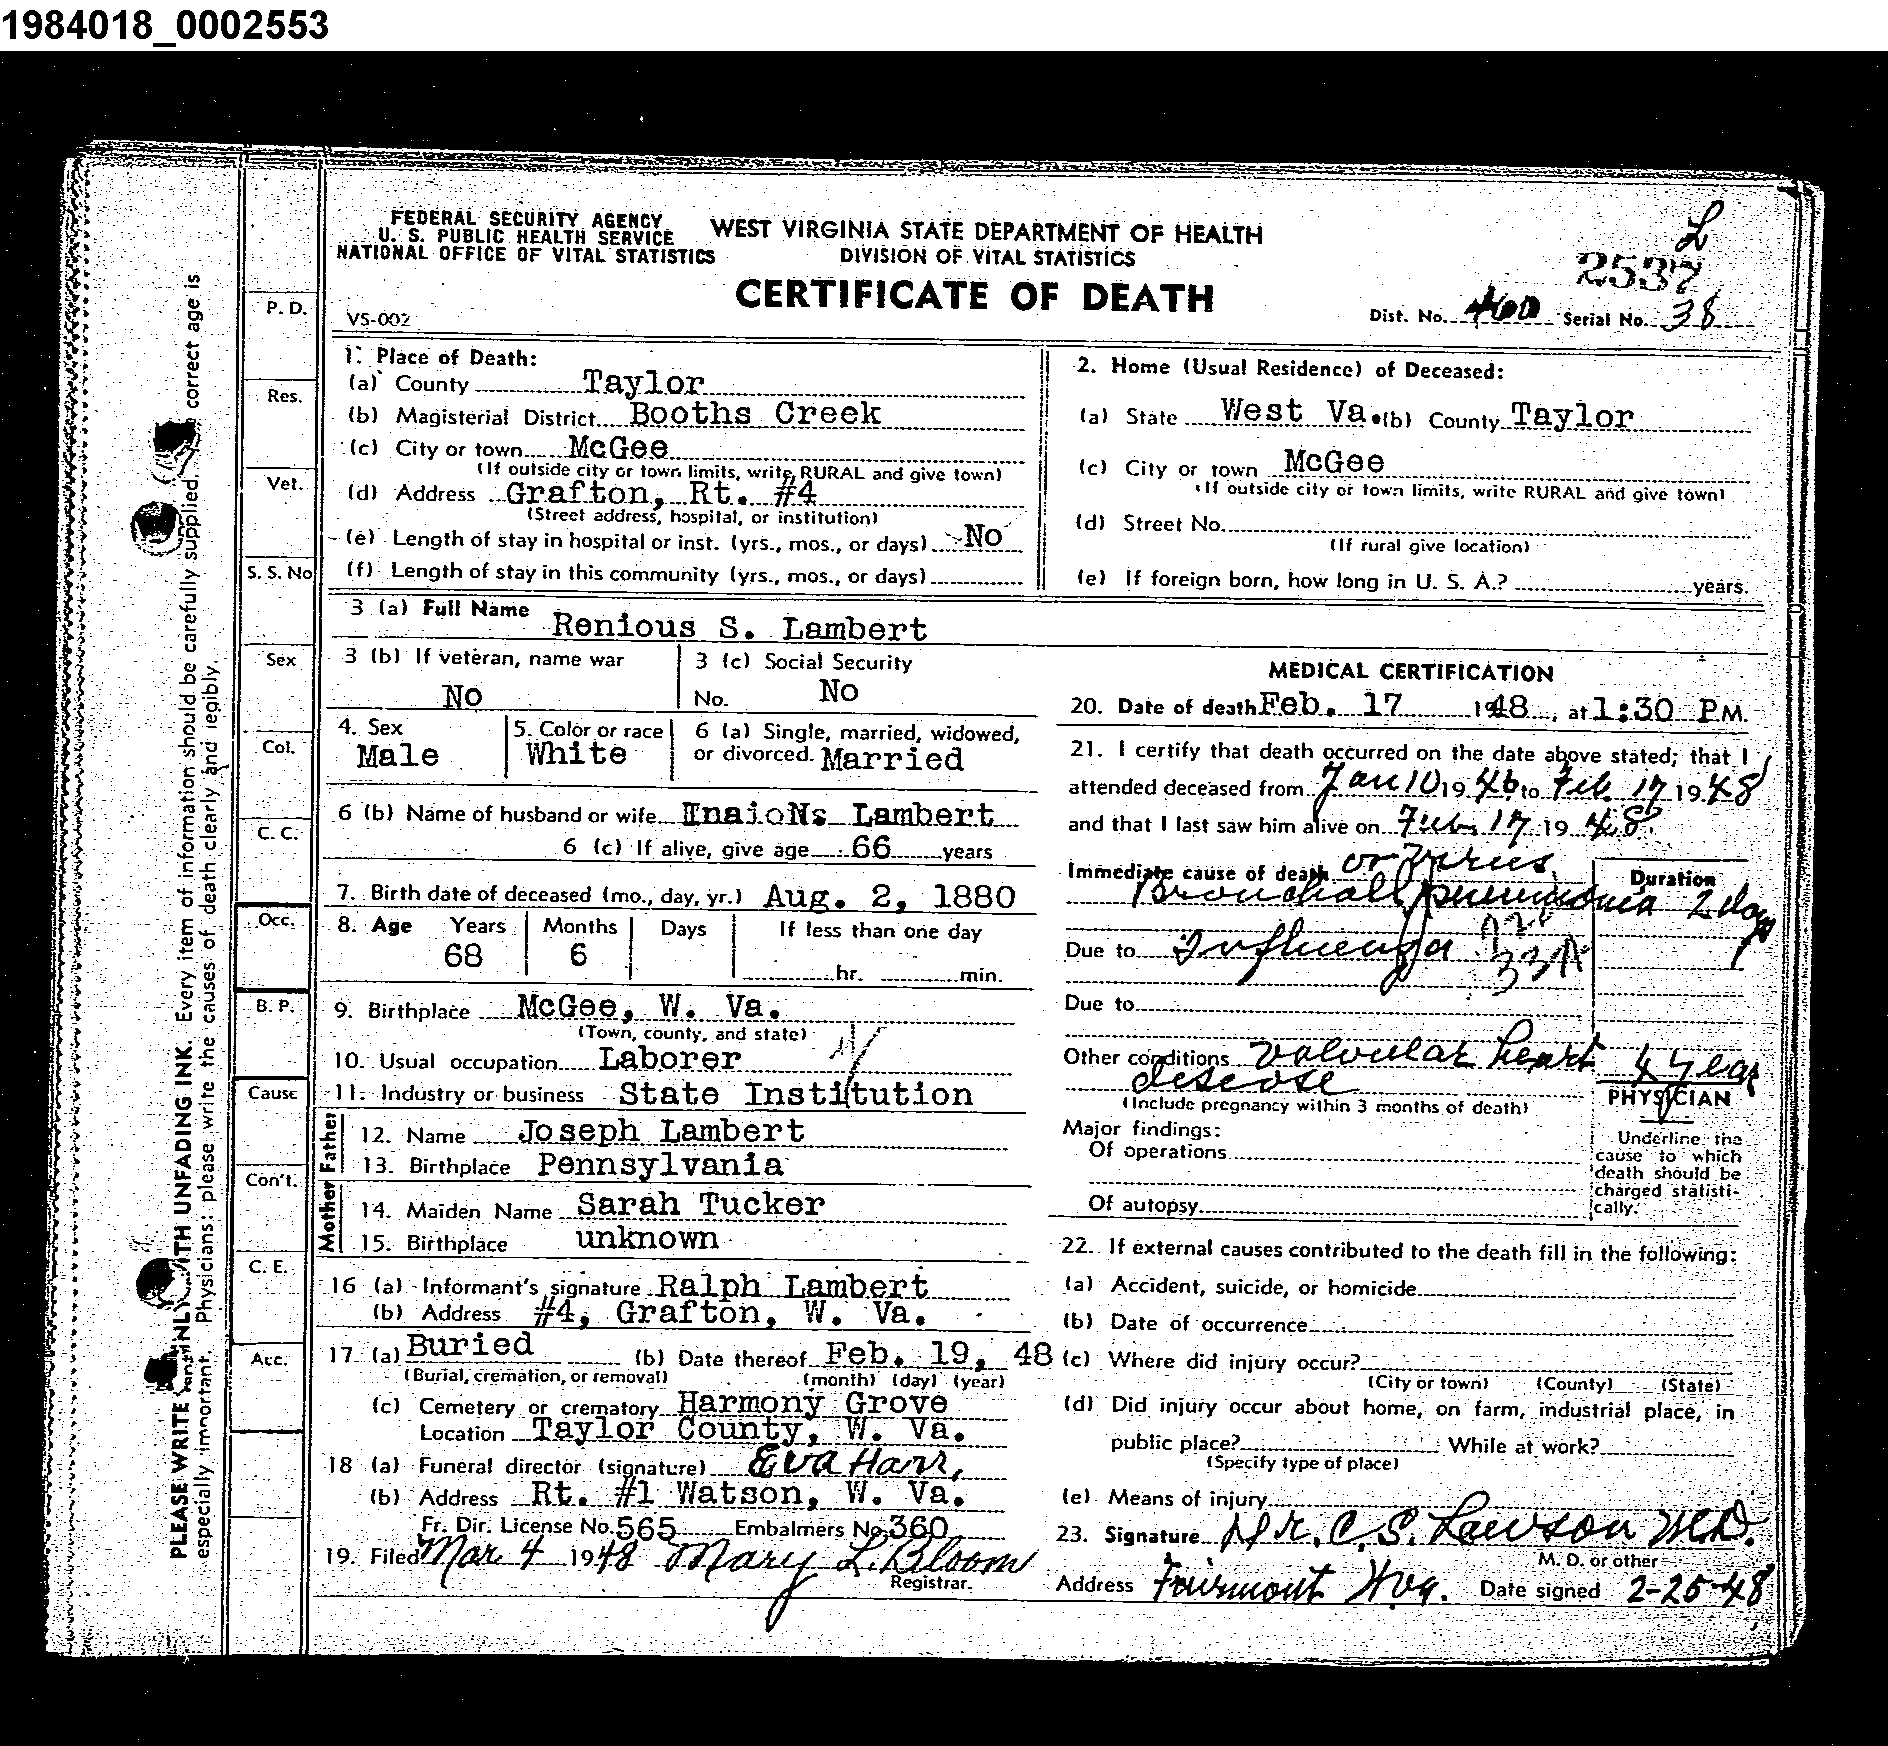 1984018_0002553
FEDERAL SECURITY AGENCY
U. S. PUBLIC HEALTH SERVICE
NATIONAL OFFICE OF VITAL STATISTICS
WEST VIRGINIA STATE DEPARTMENT OF HEALTH
DIVISION OF VITAL STATISTICS
CERTIFICATE OF DEATH
L
2537
VS-002
Dist. No. 460 Serial No. 38
P. D.
Res.
Vet.
S. S. No
Sex
Col.
C. C.
Occ.
B. P.
Cause
Con't.
C. E.
Acc.
PLEASE WRITE WITH UNFADING INK. Every item of information should be carefully supplied, correct age is
especially important. Physicians: please write the causes of death clearly and legibly.
1. Place of Death:
(a) County Taylor
(b) Magisterial District Booths Creek
(c) City or town McGee
(If outside city or town limits, write RURAL and give town)
(d) Address Grafton, Rt. #4
(Street address, hospital, or institution)
(e) Length of stay in hospital or inst. (yrs., mos., or days) No
(f) Length of stay in this community (yrs., mos., or days)
2. Home (Usual Residence) of Deceased:
(a) State West Va. (b) County Taylor
(c) City or town McGee
(If outside city or town limits, write RURAL and give town)
(d) Street No.
(If rural give location)
(e) If foreign born, how long in U. S. A.? years.
3 (a) Full Name Renious S. Lambert
3 (b) If veteran, name war
No
3 (c) Social Security
No. No
4. Sex
Male
5. Color or race
White
6 (a) Single, married, widowed,
or divorced. Married
6 (b) Name of husband or wife Lambert
6 (c) If alive, give age 66 years
7. Birth date of deceased (mo., day, yr.) Aug. 2, 1880
8. Age Years Months Days If less than one day
68 6 hr. min.
9. Birthplace McGee, W. Va.
(Town, county, and state)
10. Usual occupation Laborer
11. Industry or business State Institution
Father
12. Name Joseph Lambert
13. Birthplace Pennsylvania
Mother
14. Maiden Name Sarah Tucker
15. Birthplace unknown
16 (a) Informant's signature Ralph Lambert
(b) Address #4, Grafton, W. Va.
17 (a) Buried (b) Date thereof Feb. 19, 48
(Burial, cremation, or removal) (month) (day) (year)
(c) Cemetery or crematory Harmony Grove
Location Taylor County, W. Va.
18 (a) Funeral director (signature) Eva Harr,
(b) Address Rt. #1 Watson, W. Va.
Fr. Dir. License No. 565 Embalmers No. 360
19. Filed Mar 4 1948 Mary L. Bloom
Registrar.
MEDICAL CERTIFICATION
20. Date of death Feb. 17 1948, at 1:30 P M.
21. I certify that death occurred on the date above stated; that I
attended deceased from Jan 10 1946 to Feb. 17 1948
and that I last saw him alive on Feb. 17 1948.
Immediate cause of death or Virus
Bronchall pneumonia 2 days
Duration
Due to Influenza 33A
Due to
Other conditions valvular heart 4 year
disease
(Include pregnancy within 3 months of death)
Major findings:
Of operations
Of autopsy
PHYSICIAN
Underline the
cause to which
death should be
charged statisti-
cally.
22. If external causes contributed to the death fill in the following:
(a) Accident, suicide, or homicide
(b) Date of occurrence
(c) Where did injury occur?
(City or town) (County) (State)
(d) Did injury occur about home, on farm, industrial place, in
public place? While at work?
(Specify type of place)
(e) Means of injury
23. Signature Dr. C. S. Lawson M.D.
M. D. or other
Address Fairmont W.Va. Date signed 2-25-48